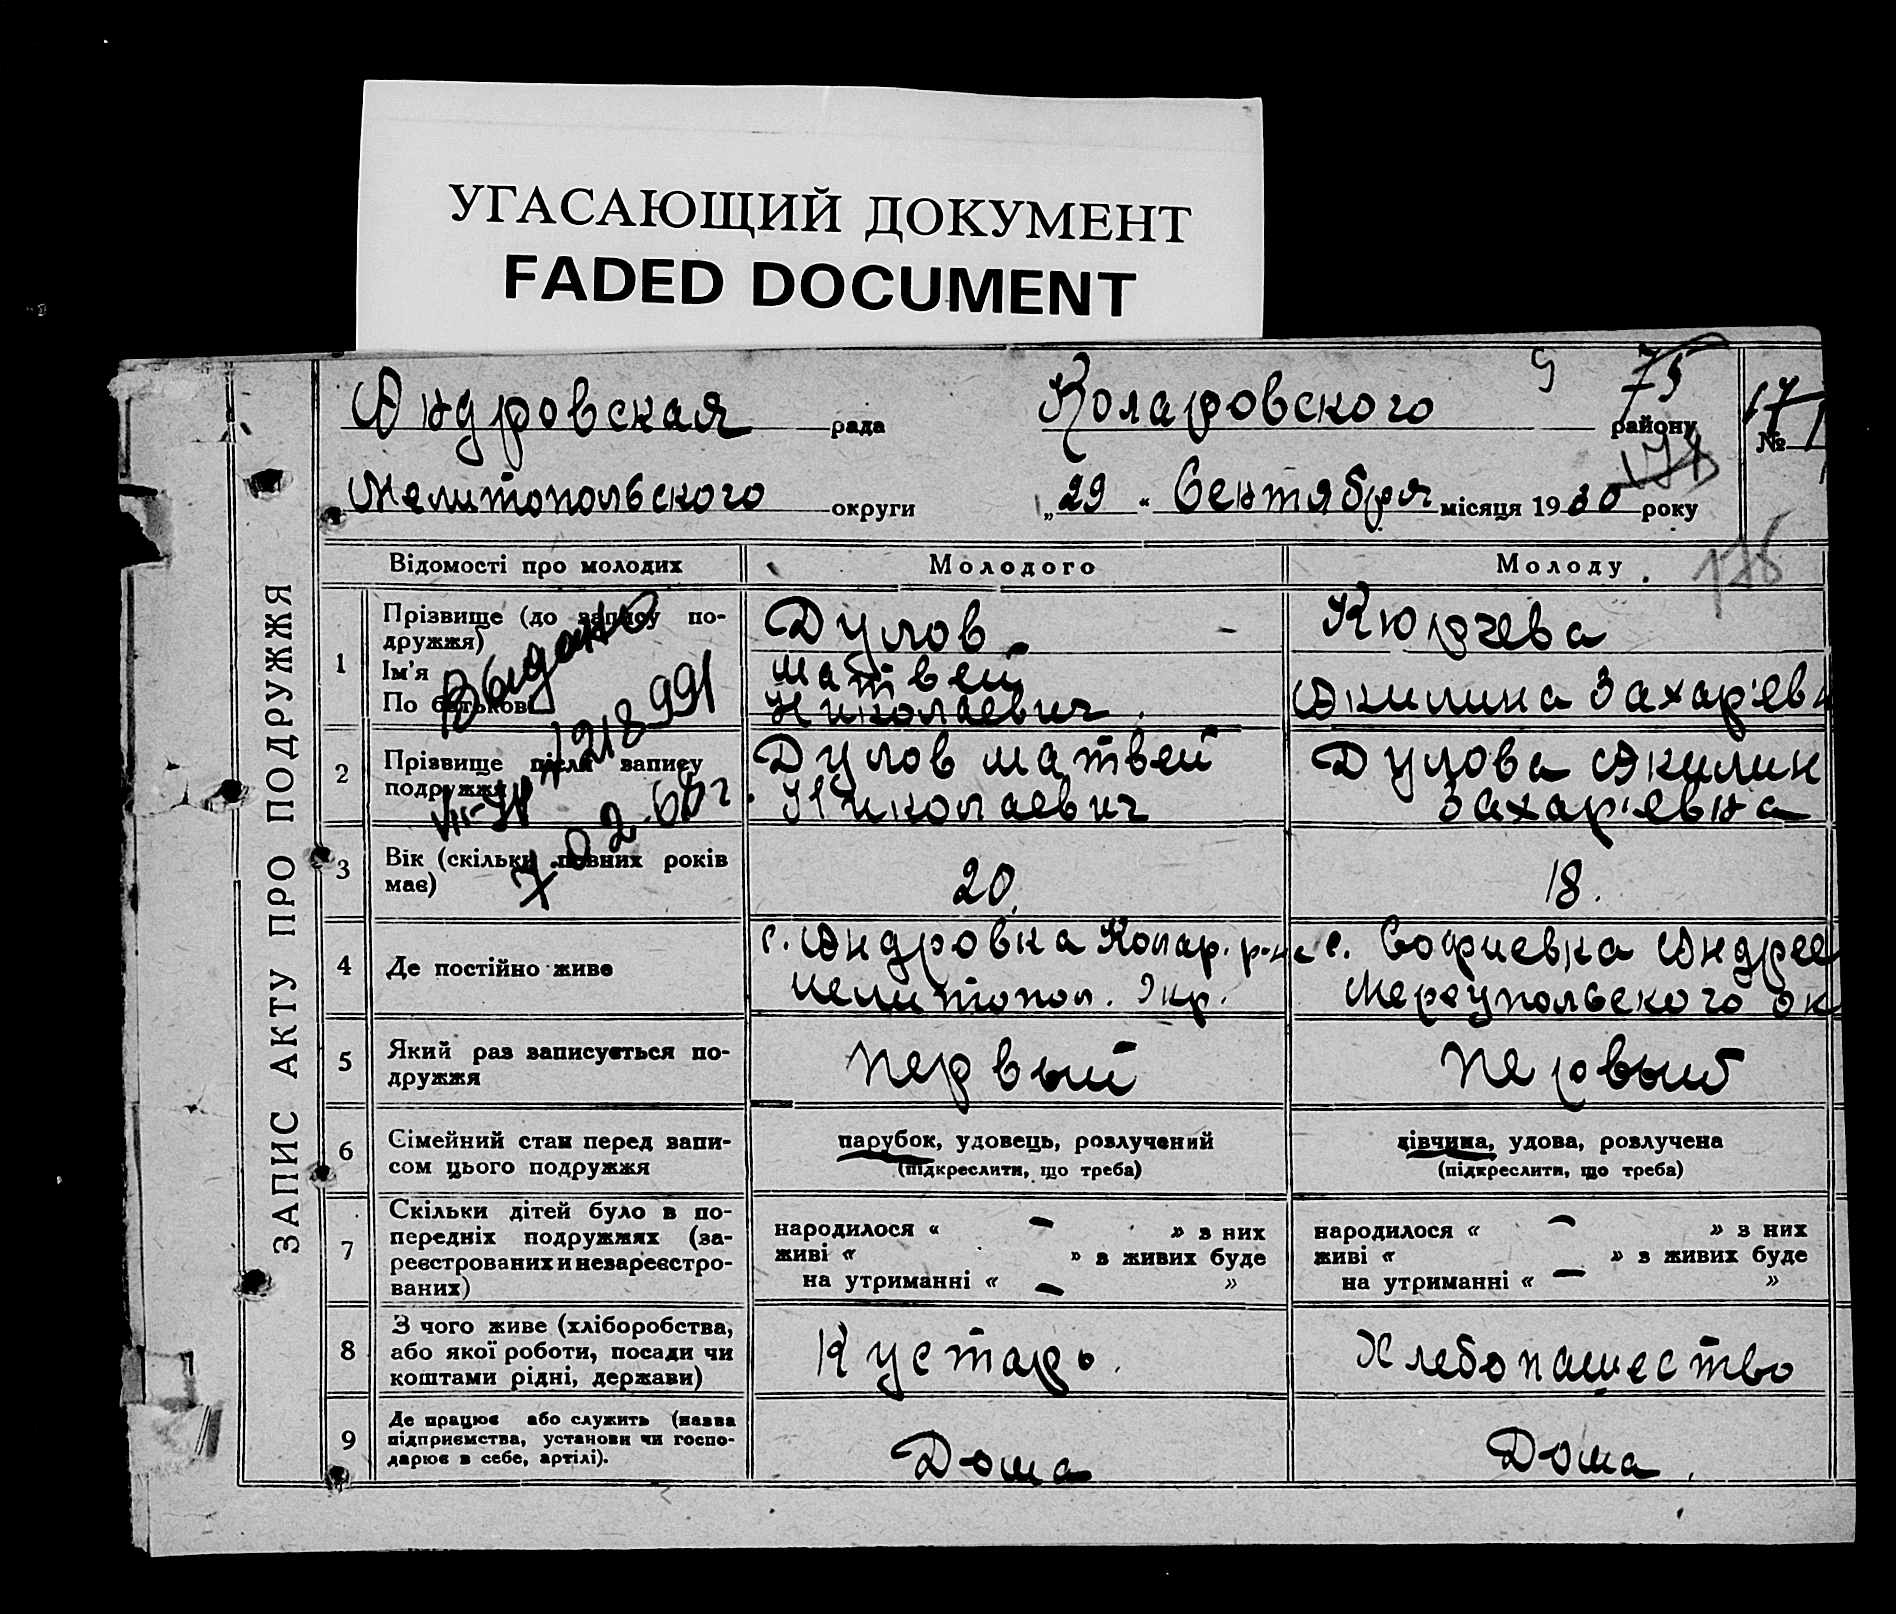 УГАСАЮЩИЙ ДОКУМЕНТ
FADED DOCUMENT
Андровская рада Коларовского району №
Мелитопольского округи „29“ Сентября місяця 1930 року
ЗАПИС АКТУ ПРО ПОДРУЖЖЯ
Відомості про молодих Молодого Молоду
1 Прізвище (до запису по-
дружжя)
Ім'я
По батькові
Дулов
Матвей
Николаевич
Кюрчева
Акилина Захар'евн
Выдано
218991
2 Прізвище після запису
подружжя
Дулов Матвей
Николаевич
Дулова Акилин
Захар'евна
3 Вік (скільки повних років
має)
20.
18.
4 Де постійно живе
с. Андровка Колар. р-на
Мелитопол. Окр.
с. Софиевка Андрее
Мереупольского ок
5 Який раз записується по-
дружжя
первый
первый
6 Сімейний стан перед запи-
сом цього подружжя
парубок, удовець, розлучений
(підкреслити, що треба)
дівчина, удова, розлучена
(підкреслити, що треба)
7 Скільки дітей було в по-
передніх подружжях (за-
реєстрованих и незареєстро-
ваних)
народилося « — » з них
живі « » в живих буде
на утриманні « — »
народилося « — » з них
живі « » в живих буде
на утриманні « — »
8 З чого живе (хліборобства,
або якої роботи, посади чи
коштами рідні, держави)
Кустарь.
Хлебопашество
9 Де працює або служить (назва
підприємства, установи чи госпо-
дарює в себе, артілі).
Дома
Дома.